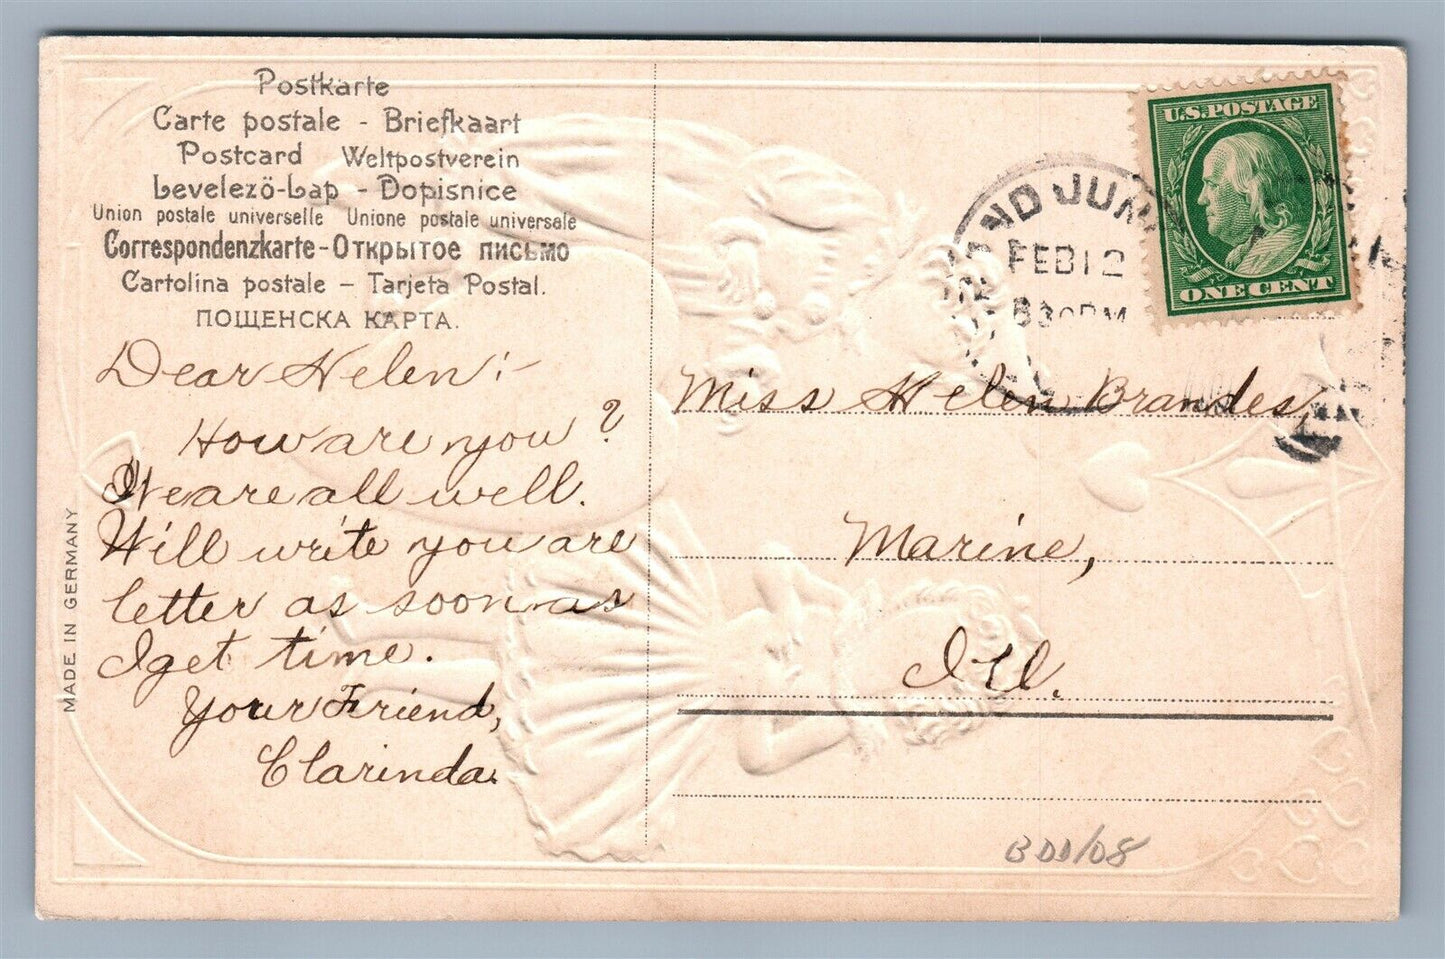 Postkarte
Carte postale - Briefkaart
Postcard Weltpostverein
Levelező-Lap - Dopisnice
Union postale universelle Unione postale universale
Correspondenzkarte - Открытое письмо
Cartolina postale – Tarjeta Postal.
ПОЩЕНСКА КАРТА.
Dear Helen:-
How are you?
We are all well.
Will write you are
letter as soon as
I get time.
Your Friend,
Clarinda.
MADE IN GERMANY
U.S. POSTAGE
ONE CENT
AND JUN
FEB 12
830PM
Miss Helen Brandes,
Marine,
Ill.